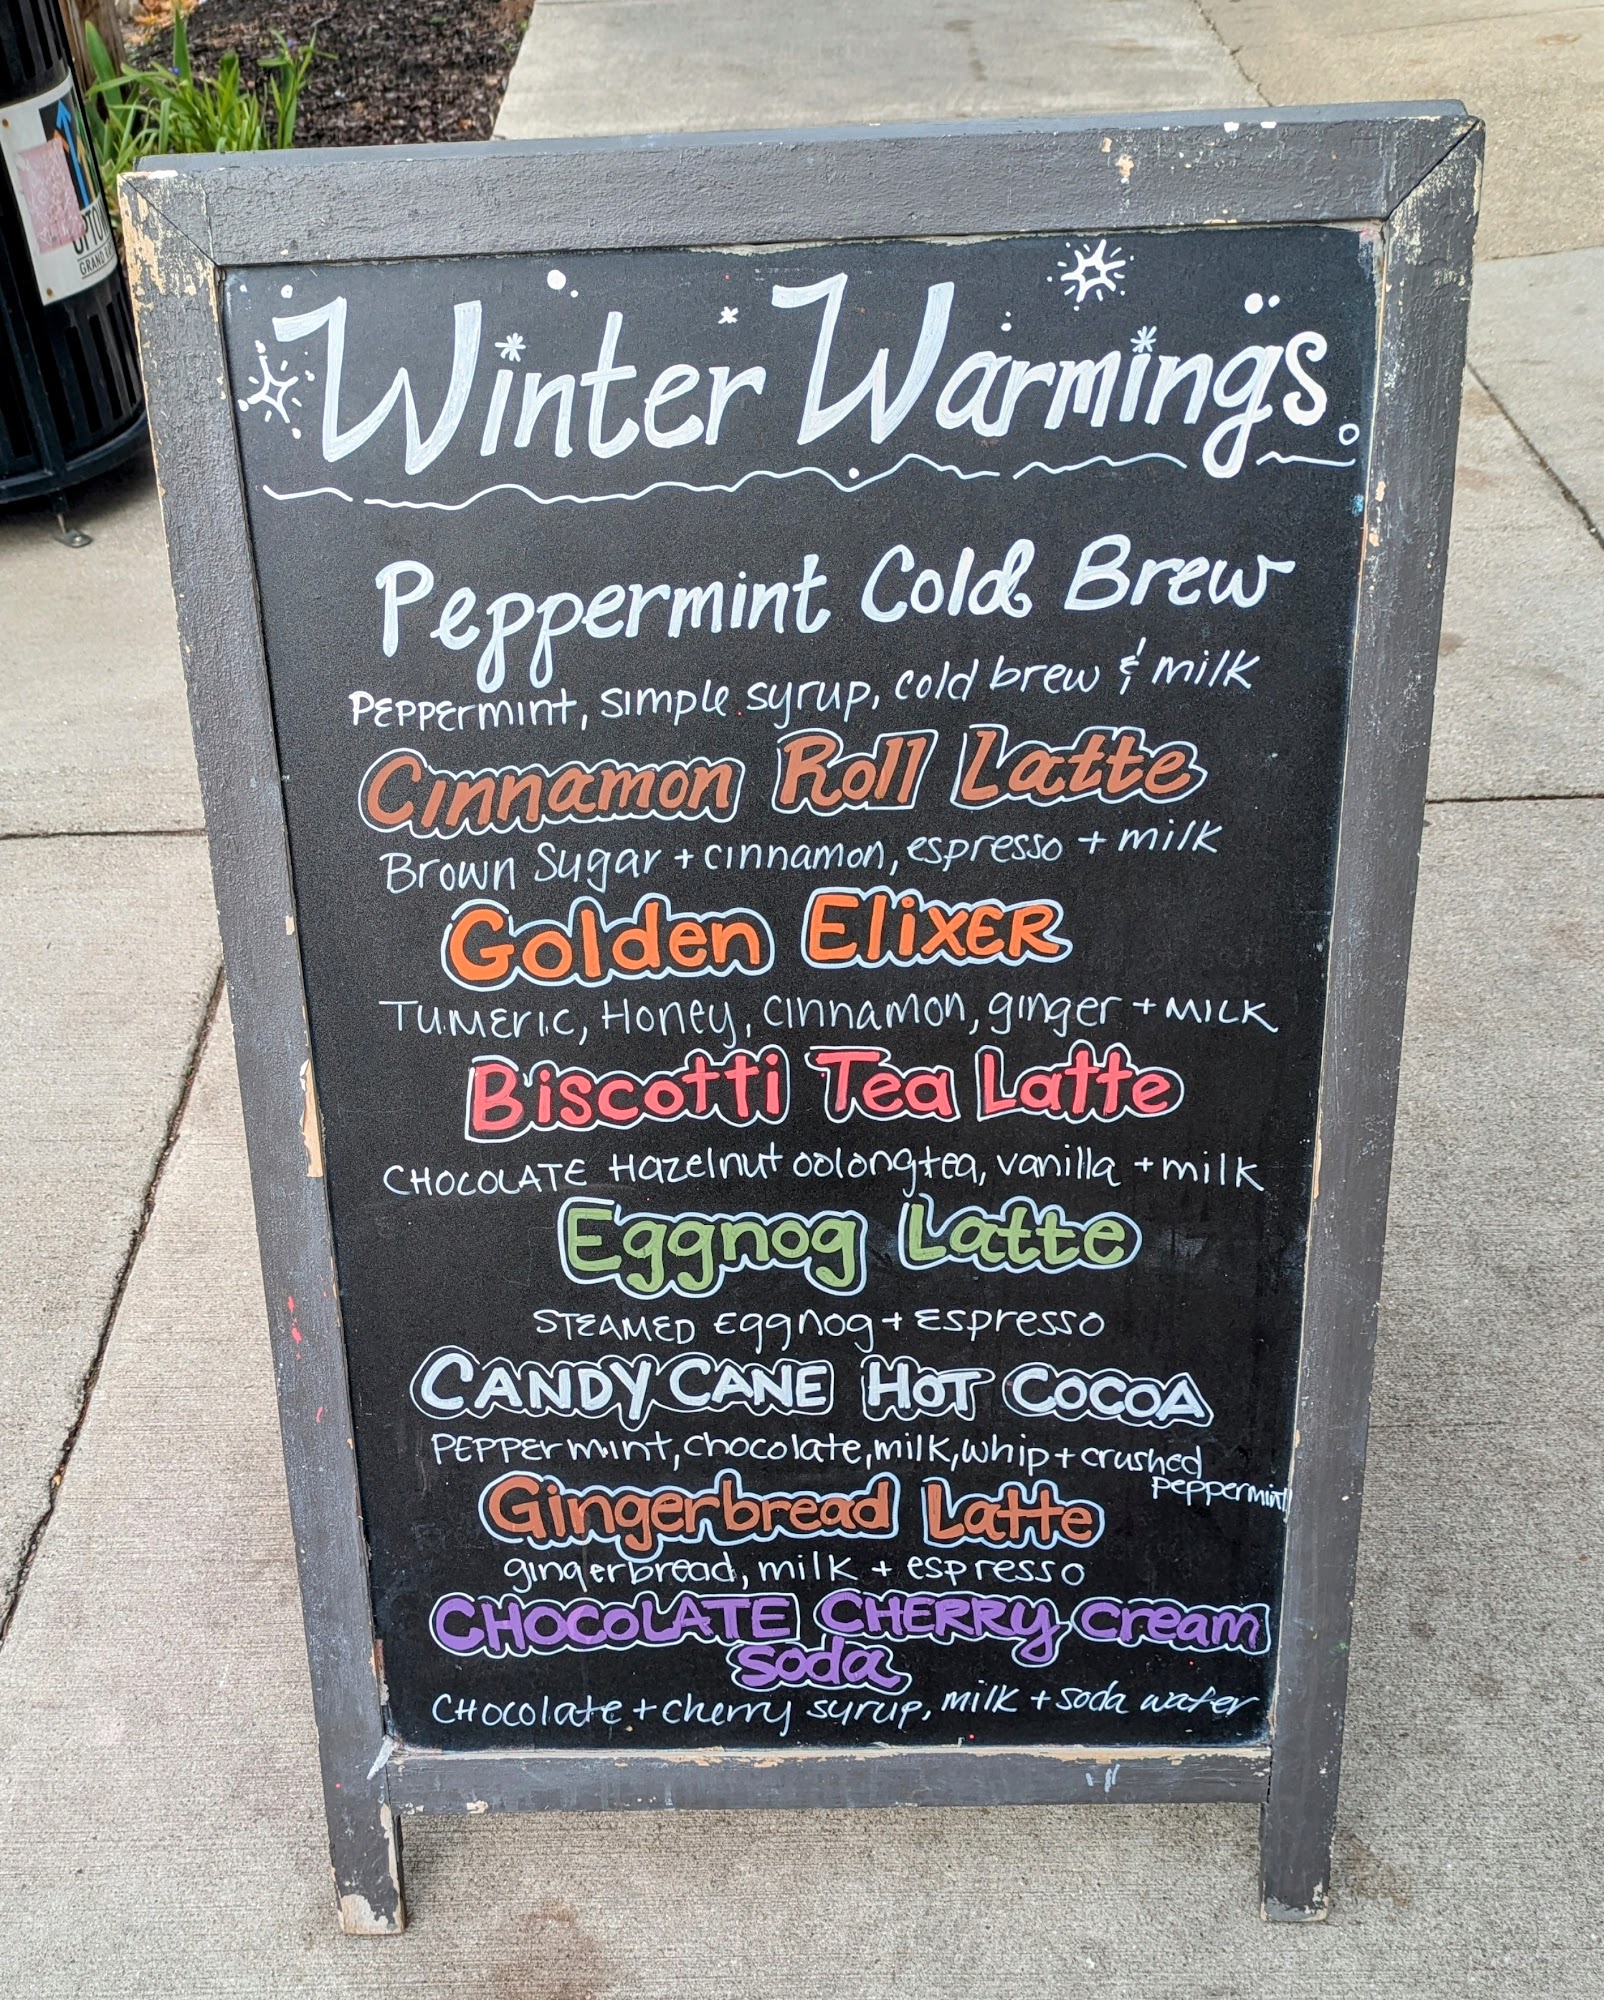 UPTO
GRAND
Winter Warmings
Peppermint Cold Brew
Peppermint, simple syrup, cold brew & milk
Cinnamon Roll Latte
Brown Sugar + cinnamon, espresso + milk
Golden Elixer
Tumeric, Honey, cinnamon, ginger + MILK
Biscotti Tea Latte
CHOCOLATE Hazelnut oolong tea, vanilla + milk
Eggnog Latte
STEAMED Eggnog + Espresso
CANDY CANE HOT COCOA
PEPPERmint, chocolate, milk, whip + crushed
peppermint
Gingerbread Latte
gingerbread, milk + espresso
CHOCOLATE CHERRY cream
soda
CHocolate + cherry syrup, milk + soda water